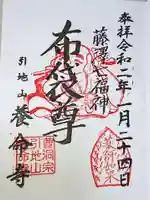 奉拝 令和二年一月二十四日
藤澤七福神
布袋尊
引地山 養命寺
曹洞宗
引地山
養命寺